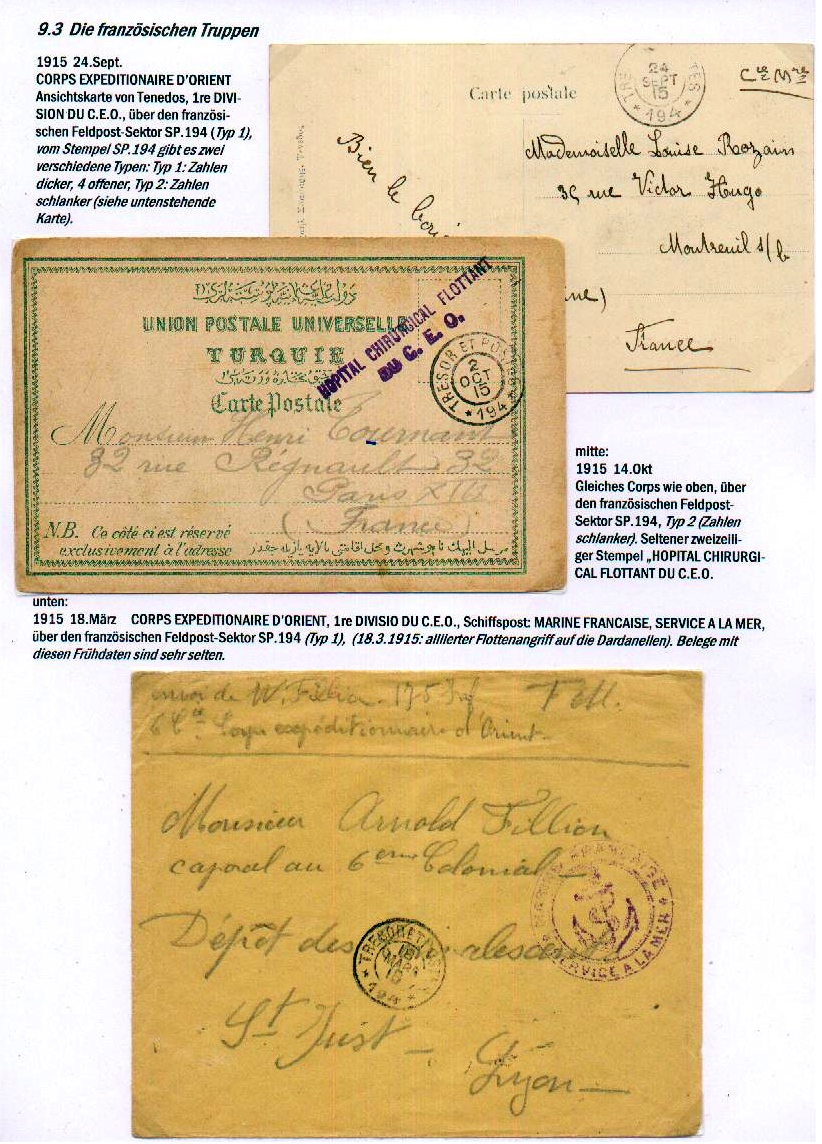 9.3 Die französischen Truppen
1915 24.Sept.
CORPS EXPEDITIONAIRE D'ORIENT
Ansichtskarte von Tenedos, 1re DIVI-
SION DU C.E.O., über den französi-
schen Feldpost-Sektor SP.194 (Typ 1),
vom Stempel SP.194 gibt es zwei
verschiedene Typen: Typ 1: Zahlen
dicker, 4 offener, Typ 2: Zahlen
schlanker (siehe untenstehende
Karte).
Carte postale
24
SEPT
15
* 194 *
Cte Mre
Bien le
Mademoiselle Louise Rozain
35 rue Victor Hugo
Montreuil s/b
ne)
France
دولت عليه عثمانيه پوسته لرى
UNION POSTALE UNIVERSELLE
TURQUIE
Carte Postale
HOPITAL CHIRURGICAL FLOTTANT
DU C. E. O.
TRESOR ET POS
2
OCT
15
* 194
Monsieur Henri Tournant
32 rue Régnault 32
Paris XIII
(France)
N.B. Ce côté ci est réservé
exclusivement à l'adresse
mitte:
1915 14.Okt
Gleiches Corps wie oben, über
den französischen Feldpost-
Sektor SP.194, Typ 2 (Zahlen
schlanker). Seltener zweizeili-
ger Stempel „HOPITAL CHIRURGI-
CAL FLOTTANT DU C.E.O.
unten:
1915 18.März CORPS EXPEDITIONAIRE D'ORIENT, 1re DIVISIO DU C.E.O., Schiffspost: MARINE FRANCAISE, SERVICE A LA MER,
über den französischen Feldpost-Sektor SP.194 (Typ 1), (18.3.1915: alllierter Flottenangriff auf die Dardanellen). Belege mit
diesen Frühdaten sind sehr selten.
envoi de W. Fillion 175
6 Cie Corps expéditionnaire d'Orient
Monsieur Arnold Fillion
caporal au 6ème Colonial
MARINE FRANÇAISE
* SERVICE A LA MER *
Dépôt des
* TRESOR ET
18
MARS
15
* 194 *
St Just
Lyon